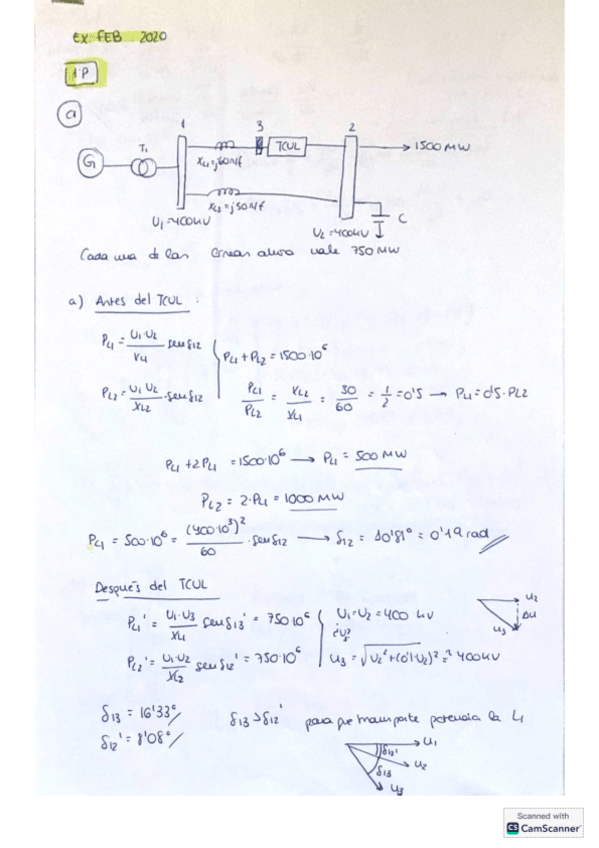 EX. FEB 2020
1.P
a
1 3 2
G T1 TCUL → 1500 MW
XL1=j60Ω/f
XL2=j30Ω/f
U1=400kV U2=400kV C
Cada una de las líneas ahora vale 750 MW
a) Antes del TCUL :
PL1 = U1·U2/XL1 sen δ12
PL1 + PL2 = 1500·10^6
PL2 = U1 U2/XL2 · sen δ12
PL1/PL2 = XL2/XL1 = 30/60 = 1/2 = 0'5 → PL1 = 0'5·PL2
PL1 + 2PL1 = 1500·10^6 → PL1 = 500 MW
PL2 = 2·PL1 = 1000 MW
PL1 = 500·10^6 = (400·10^3)^2/60 · sen δ12 → δ12 = 10'81° = 0'19 rad
Después del TCUL
PL1' = U1·U3/XL1 sen δ13' = 750·10^6
U1=U2 = 400 kV
¿U3?
PL2' = U1·U2/XL2 sen δ12' = 750·10^6
U3 = √(U2²+(0'1·U2)²) ≈ 400kV
U2
ΔU
U3
δ13 = 16'33°
δ12' = 8'08°
δ13 > δ12' para que transporte potencia la L1
U1
δ12'
U2
δ13
U3
Scanned with
CS CamScanner